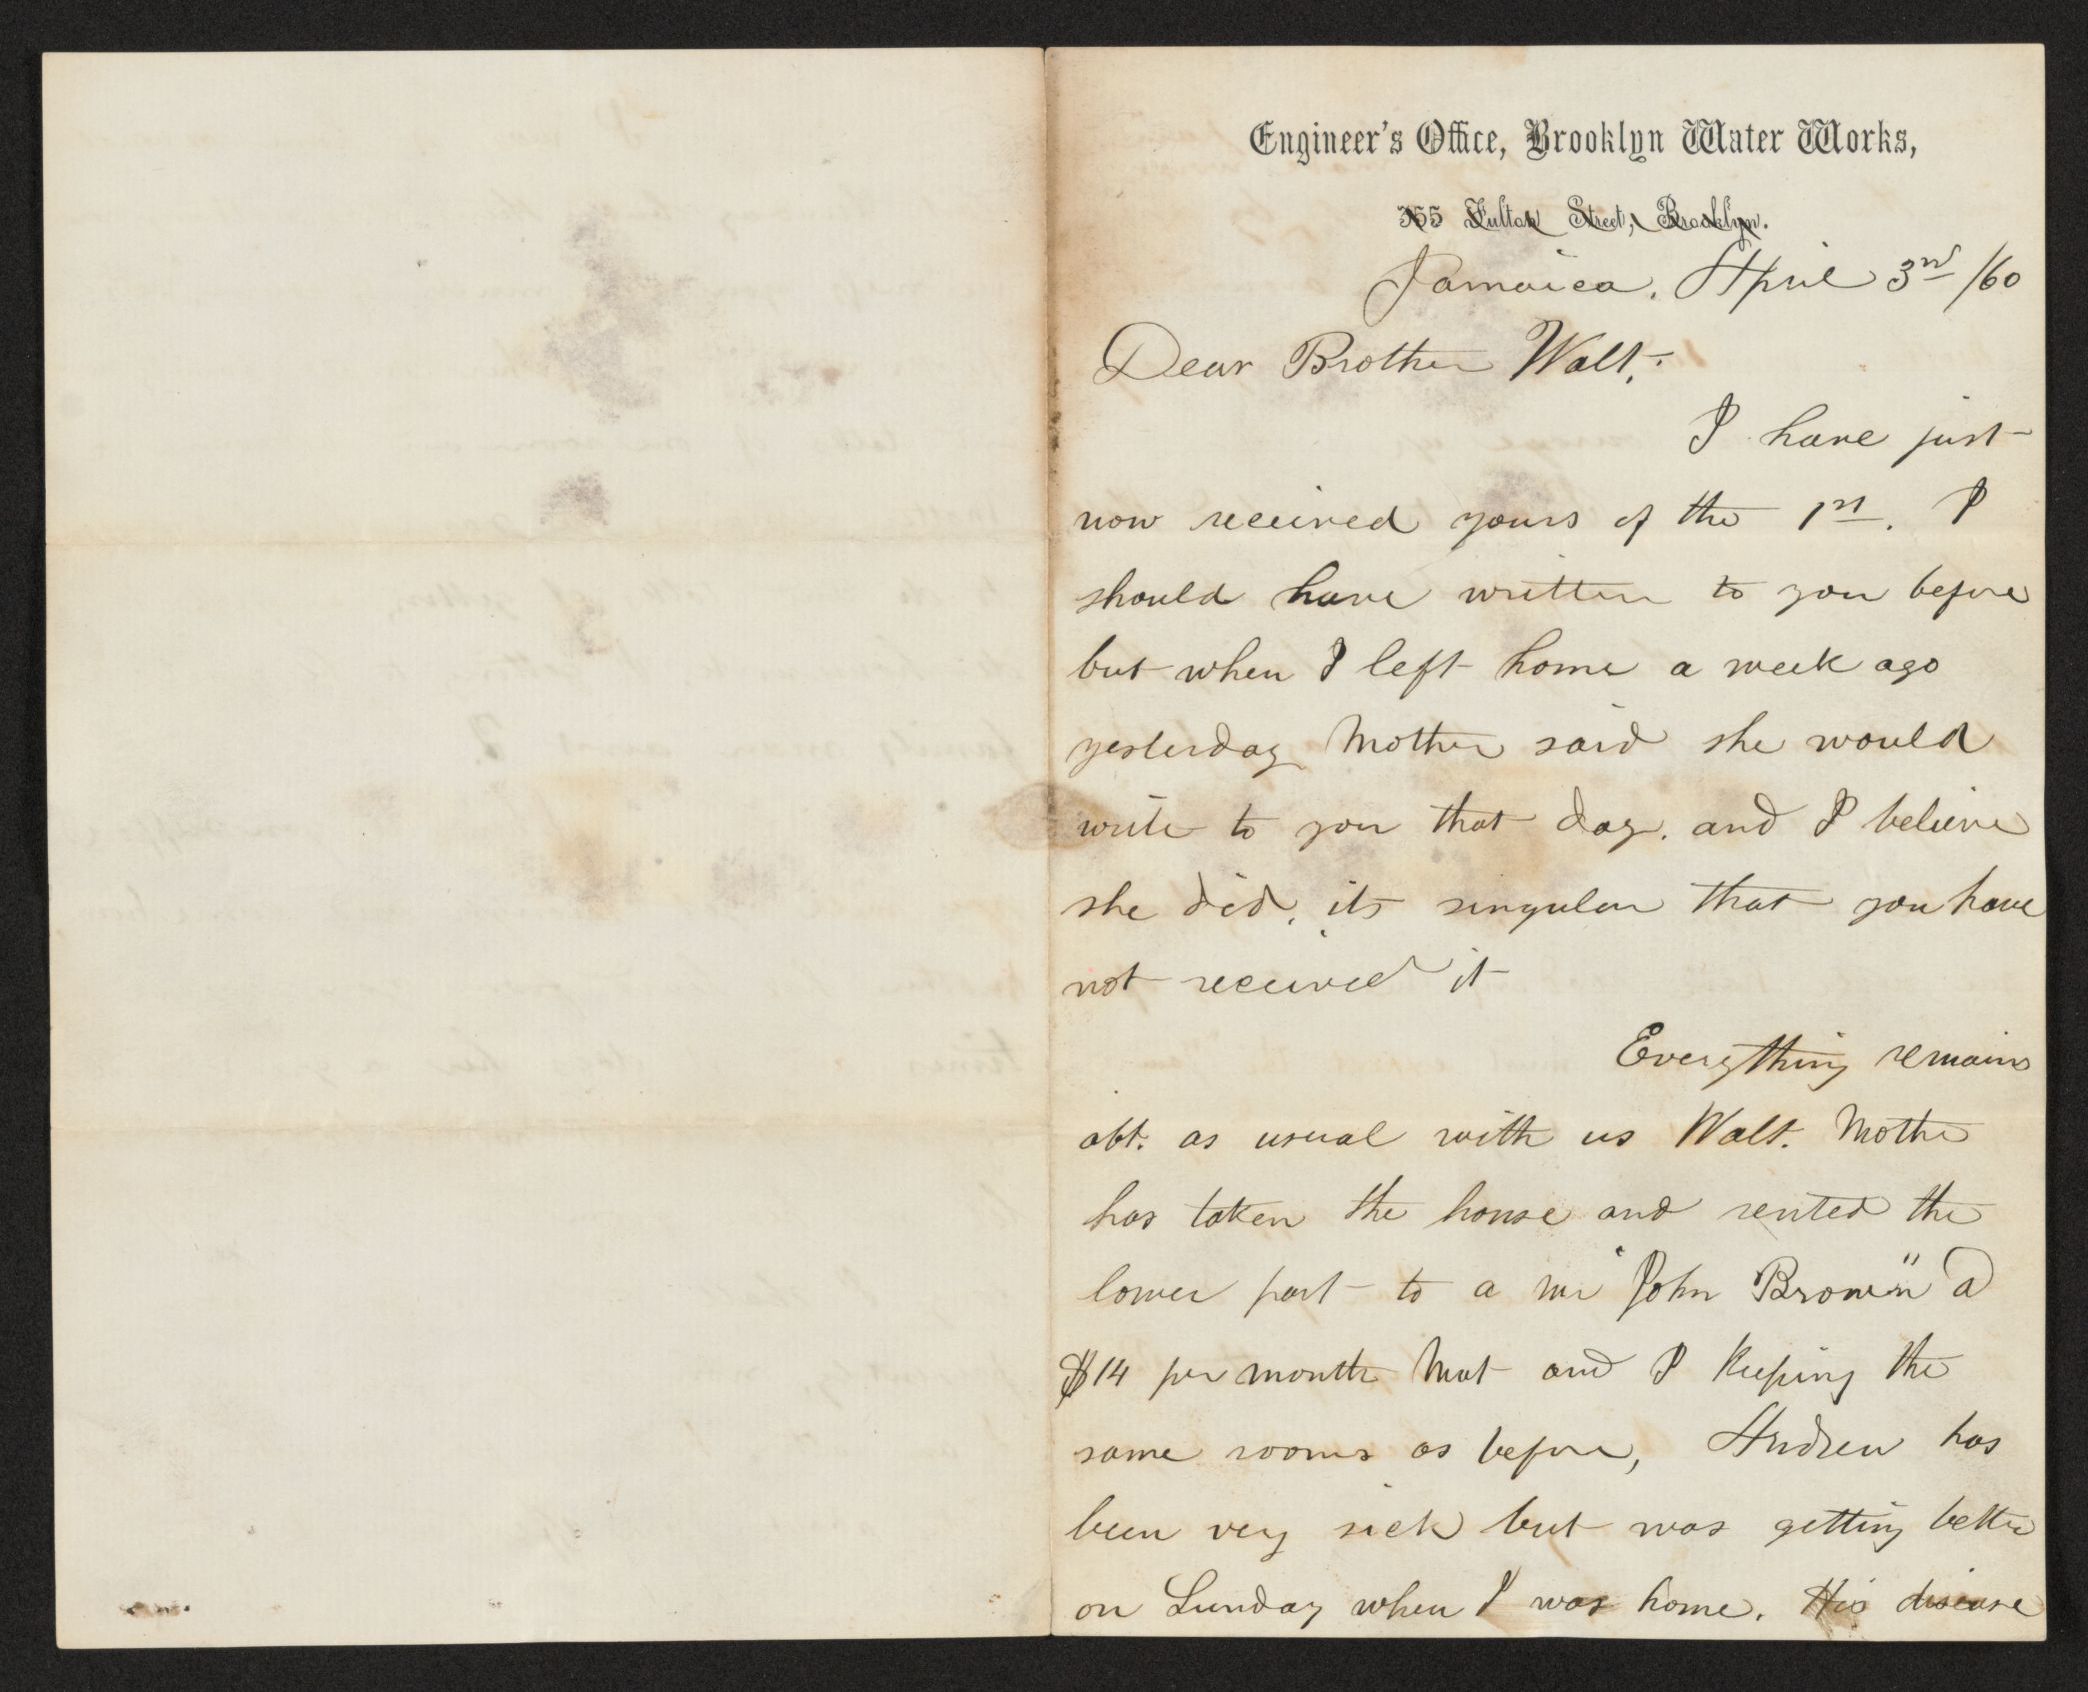 Engineer's Office, Brooklyn Water Works,
355 Fulton Street, Brooklyn.
Jamaica, April 3rd /60
Dear Brother Walt,:
I have just
now received yours of the 1st. I
should have written to you before
but when I left home a week ago
yesterday Mother said she would
write to you that day. and I believe
she did, its singular that you have
not received it
Everything remains
abt. as usual with us Walt. Mother
has taken the house and rented the
lower part to a Mr "John Brown" a
$14 per month Mat and I keeping the
same rooms as before, Andrew has
been very sick but was getting better
on Sunday when I was home. His disease